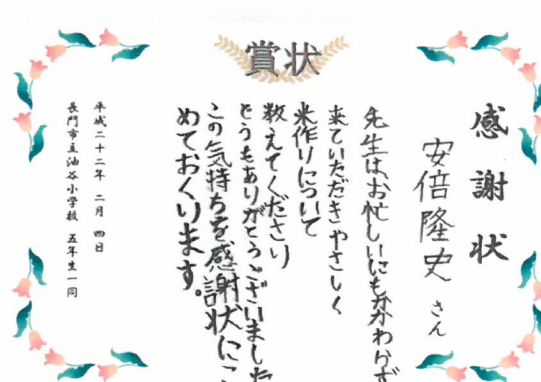 賞状
感謝状
安倍隆史さん
先生はお忙しいにもかかわらず
来ていただきやさしく
米作りについて
教えてくださり
どうもありがとうございました
この気持ちを感謝状にこ
めておくります。
平成二十二年 二月 四日
長門市立油谷小学校 五年生一同